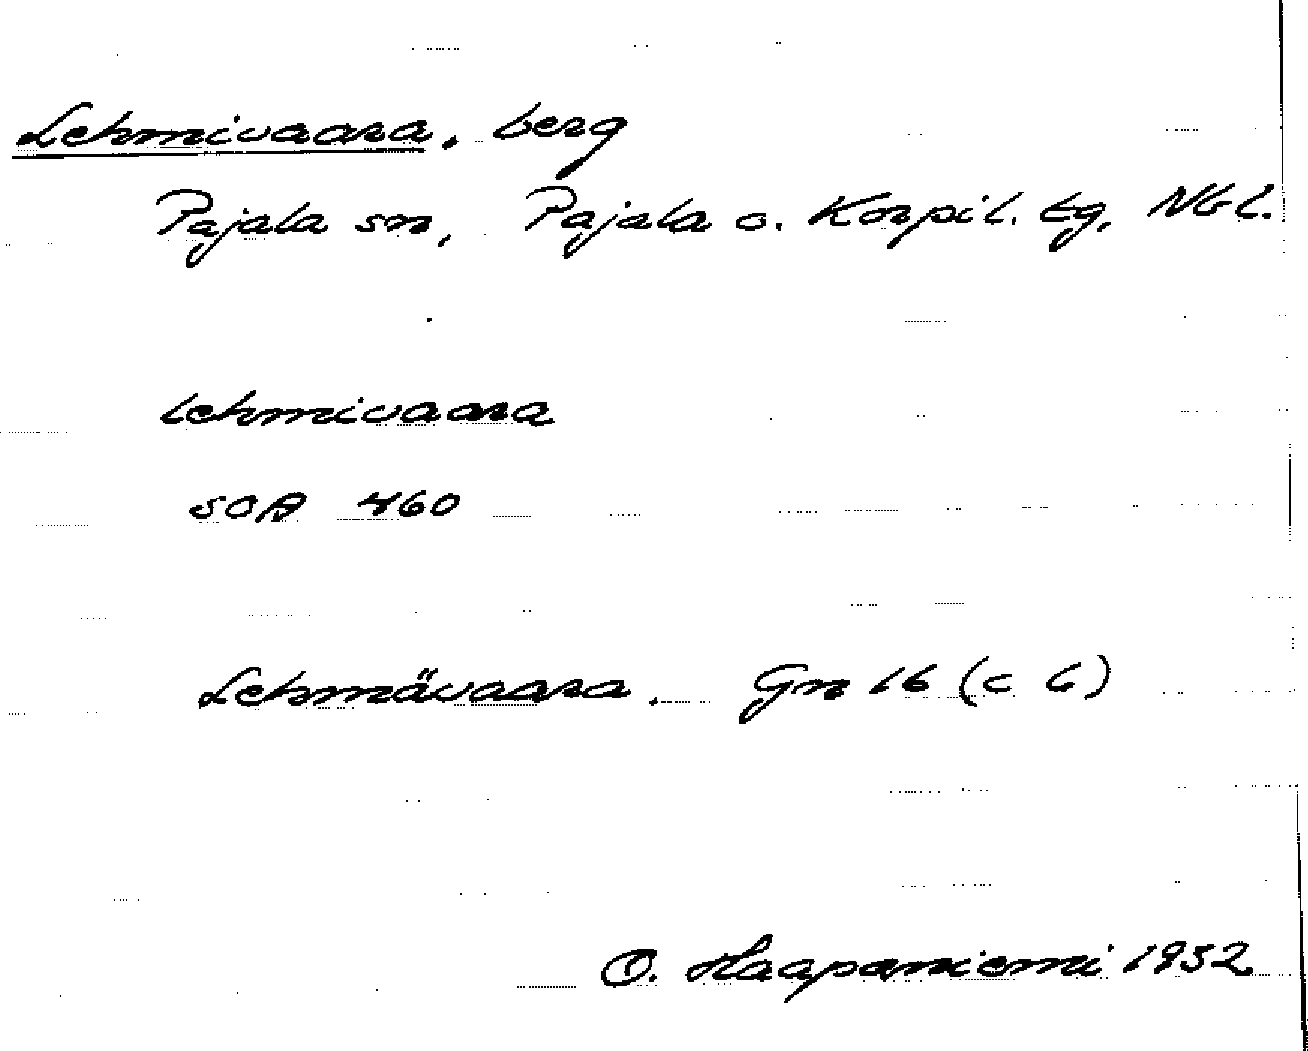 Lehmivaara, berg
Pajala sn, Pajala o. Korpil. tg, Nbl.
lehmivaara
SOA 460
Lehmävaara. Gn 16 (c 6)
O. Haapaniemi 1932